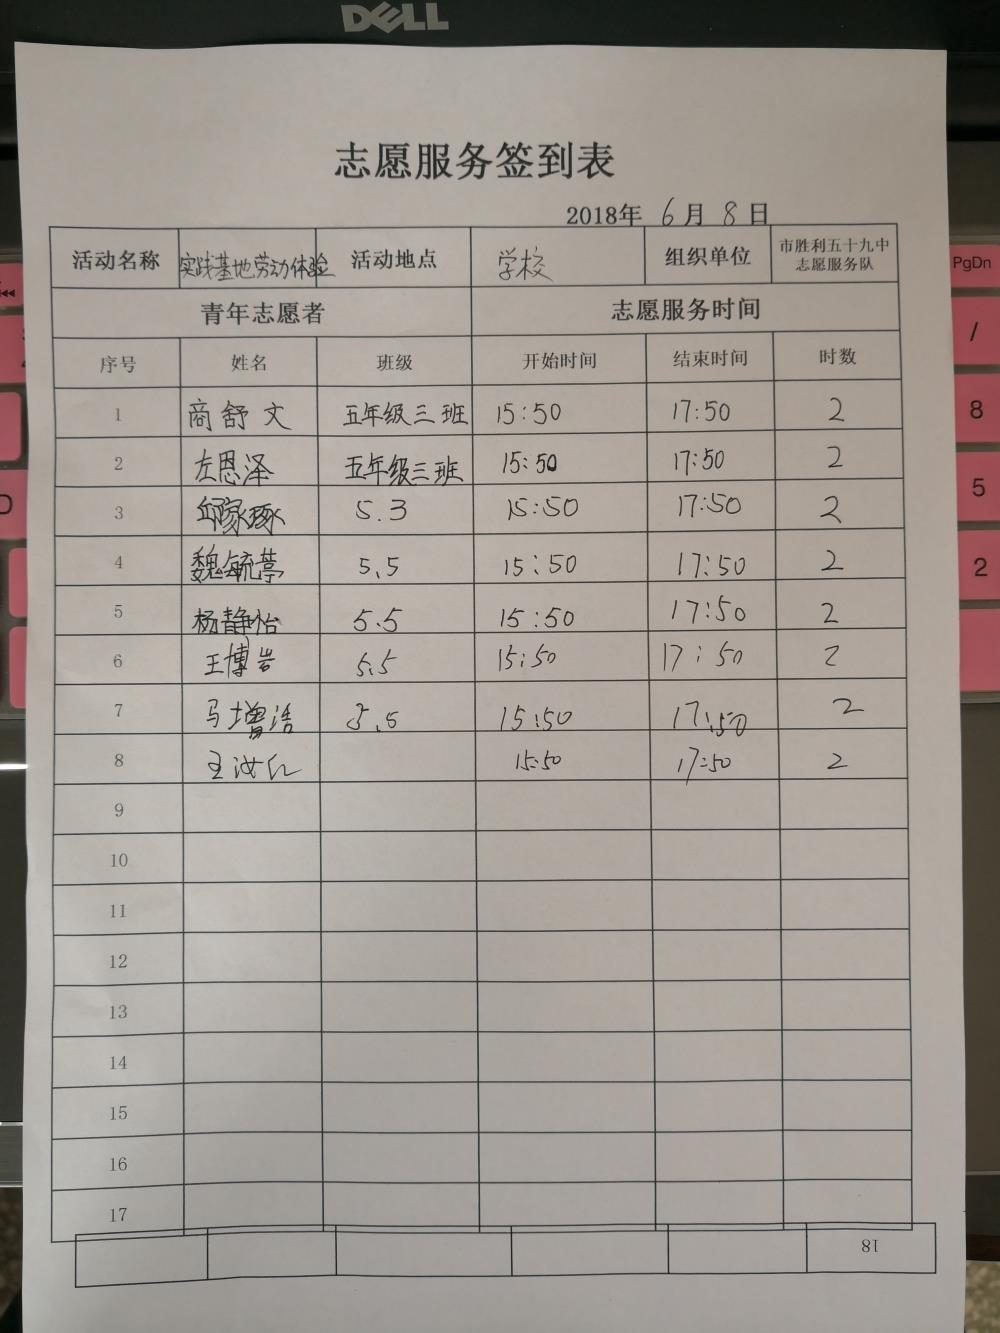 DELL
志愿服务签到表
2018年 6月 8日
活动名称 实践基地劳动体验 活动地点 学校 组织单位 市胜利五十九中
志愿服务队
青年志愿者 志愿服务时间
序号 姓名 班级 开始时间 结束时间 时数
1 商舒文 五年级三班 15:50 17:50 2
2 左恩泽 五年级三班 15:50 17:50 2
3 邱家琢 5.3 15:50 17:50 2
4 魏毓葶 5.5 15:50 17:50 2
5 杨静怡 5.5 15:50 17:50 2
6 王博岩 5.5 15:50 17:50 2
7 马增浩 5.5 15:50 17:50 2
8 王汝 15:50 17:50 2
9
10
11
12
13
14
15
16
17
18
PgDn
/
8
5
2
D